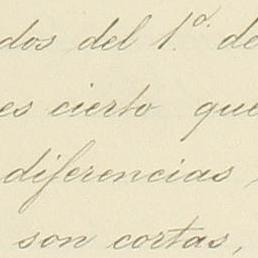 dos del 1º. de
es cierto que
diferencias
son cortas,